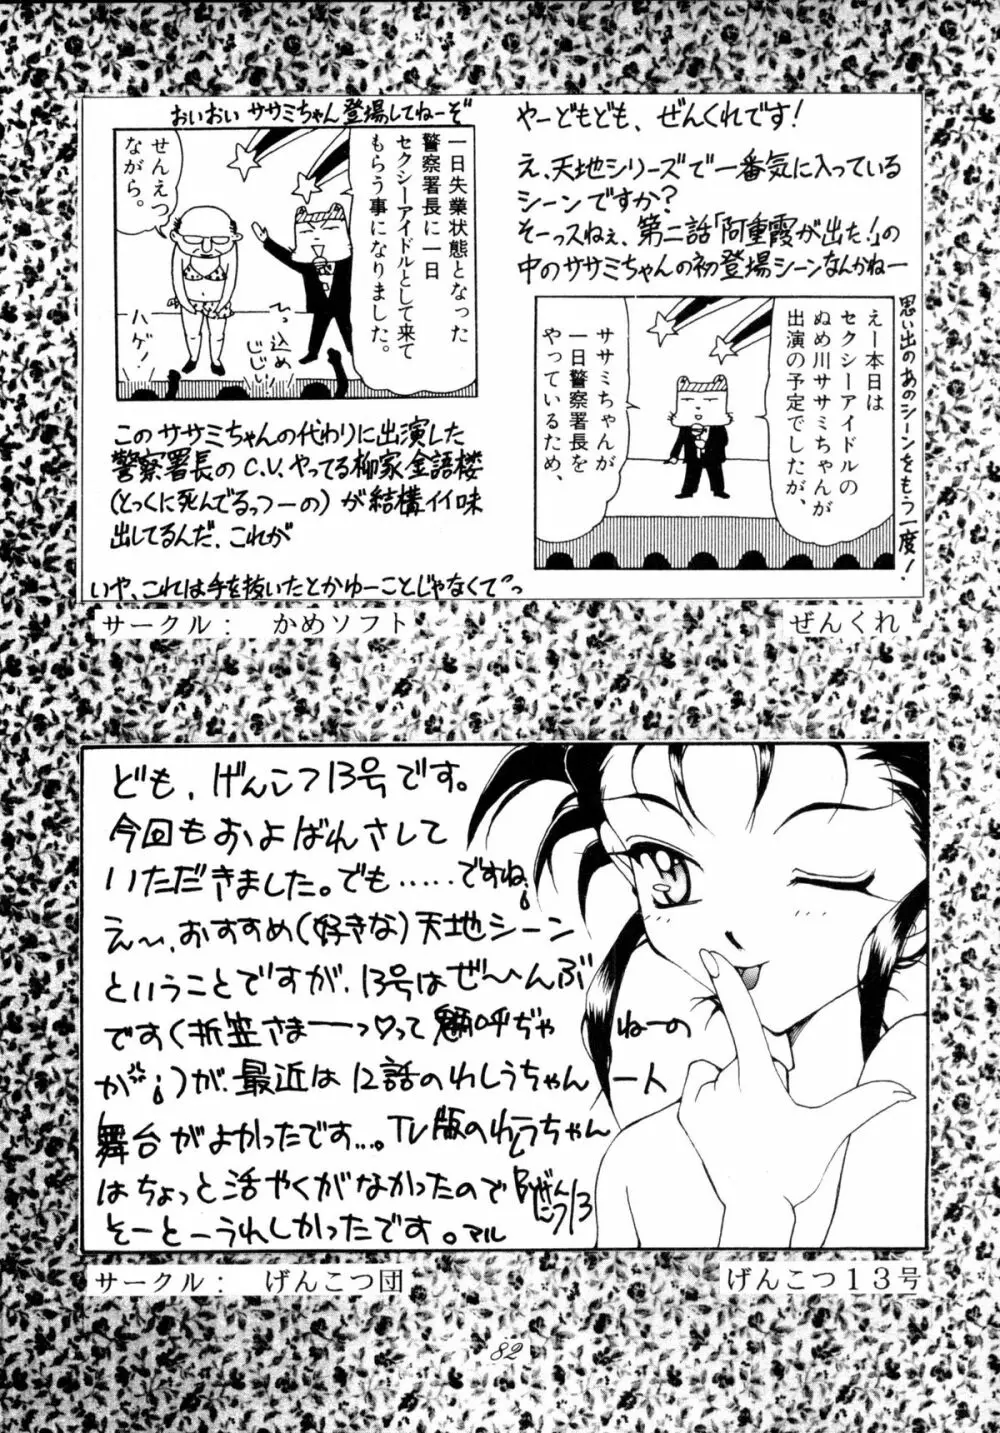 やーどもども、ぜんくれです!
え、天地シリーズで一番気に入っている
シーンですか?
そーっスねぇ、第二話「阿重霞が出た!」の
中のササミちゃんの初登場シーンなんかねー
思い出のあのシーンをもう一度!
えー本日は
セクシーアイドルの
ぬめ川ササミちゃんが
出演の予定でしたが、
ササミちゃんが
一日警察署長を
やっているため、
おいおいササミちゃん登場してねーぞ
一日失業状態となった
警察署長に一日
セクシーアイドルとして来て
もらう事になりました。
せんえつ
ながら。
ハゲ!
ひっ込め
じじい
このササミちゃんの代わりに出演した
警察署長のC.V.やってる柳家金語楼
(とっくに死んでるっつーの)が結構イイ味
出してるんだ、これが
いや、これは手を抜いたとかゆーことじゃなくてっ
サークル: かめソフト
ぜんくれ
ども、げんこつ13号です。
今回もおよばれさして
いただきました。でも.....ですね
え〜、おすすめ(好きな)天地シーン
ということですが、13号はぜ〜んぶ
です(折笠さまーっ♡って
ねーの
が、最近は12話のわしうちゃん
ート
舞台がよかったです...。TV版のわしうちゃん
はちょっと活やくがなかったので
そーとーうれしかったです。マル
サークル: げんこつ団
げんこつ13号
82